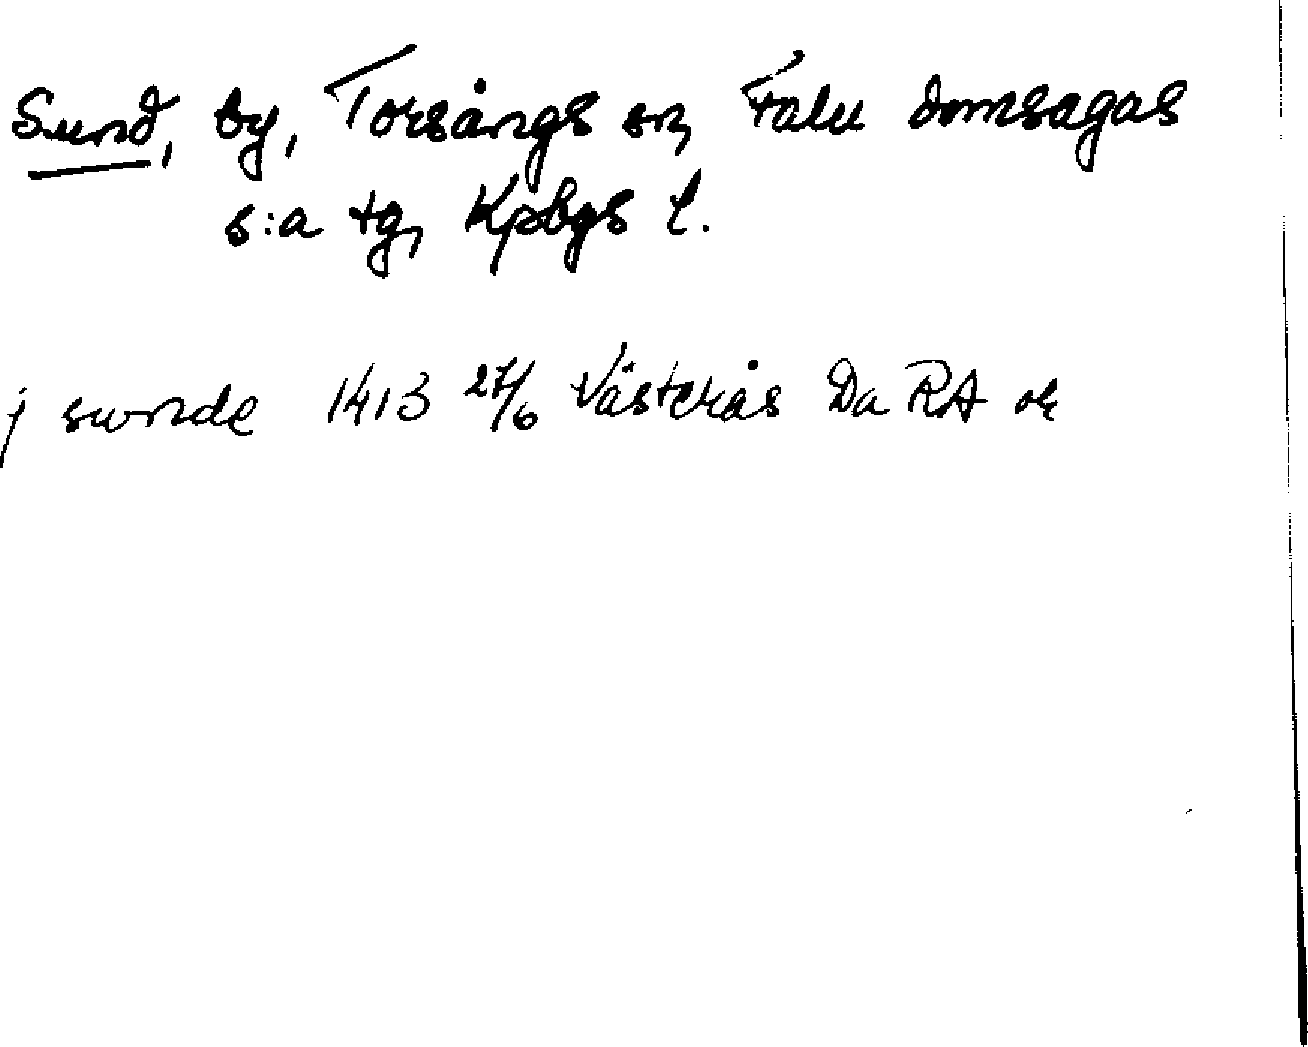 Sund, by, Torsångs sn, Falu domsagas
s:a tg, Kpbgs l.
j sunde 1413 27/6 Västerås Da RA or